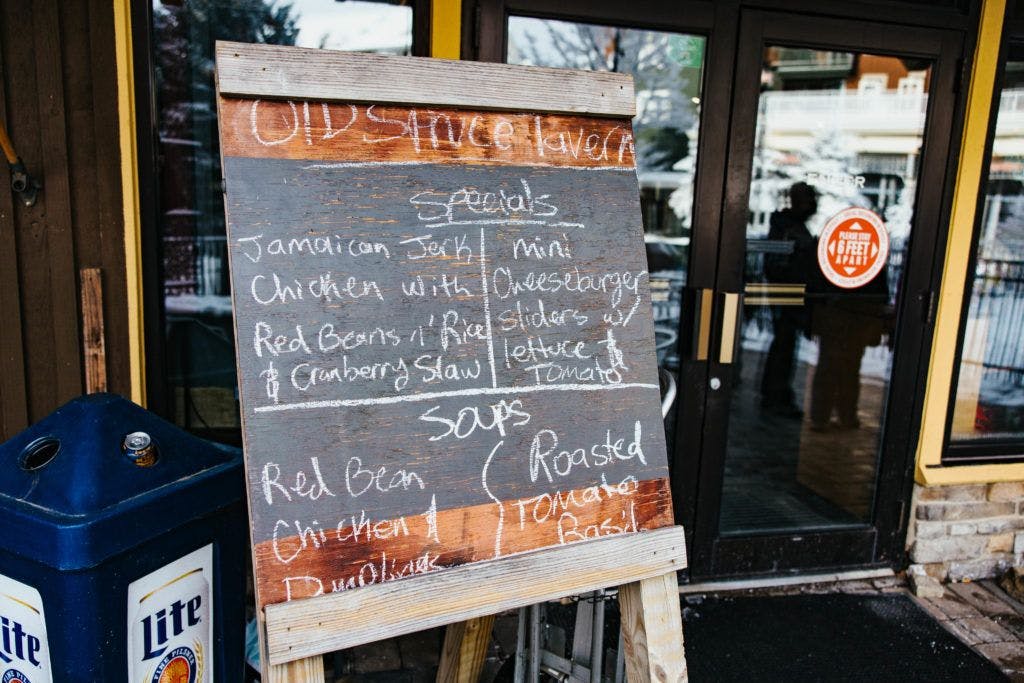 Old Spruce Tavern
Specials
Jamaican Jerk
Chicken with
Red Beans n' Rice
& Cranberry Slaw
mini
Cheeseburger
sliders w/
lettuce &
Tomato
Soups
Red Bean
Chicken &
Dumplings
Roasted
Tomato
Basil
PLEASE STAY
6 FEET
APART
Lite
Lite